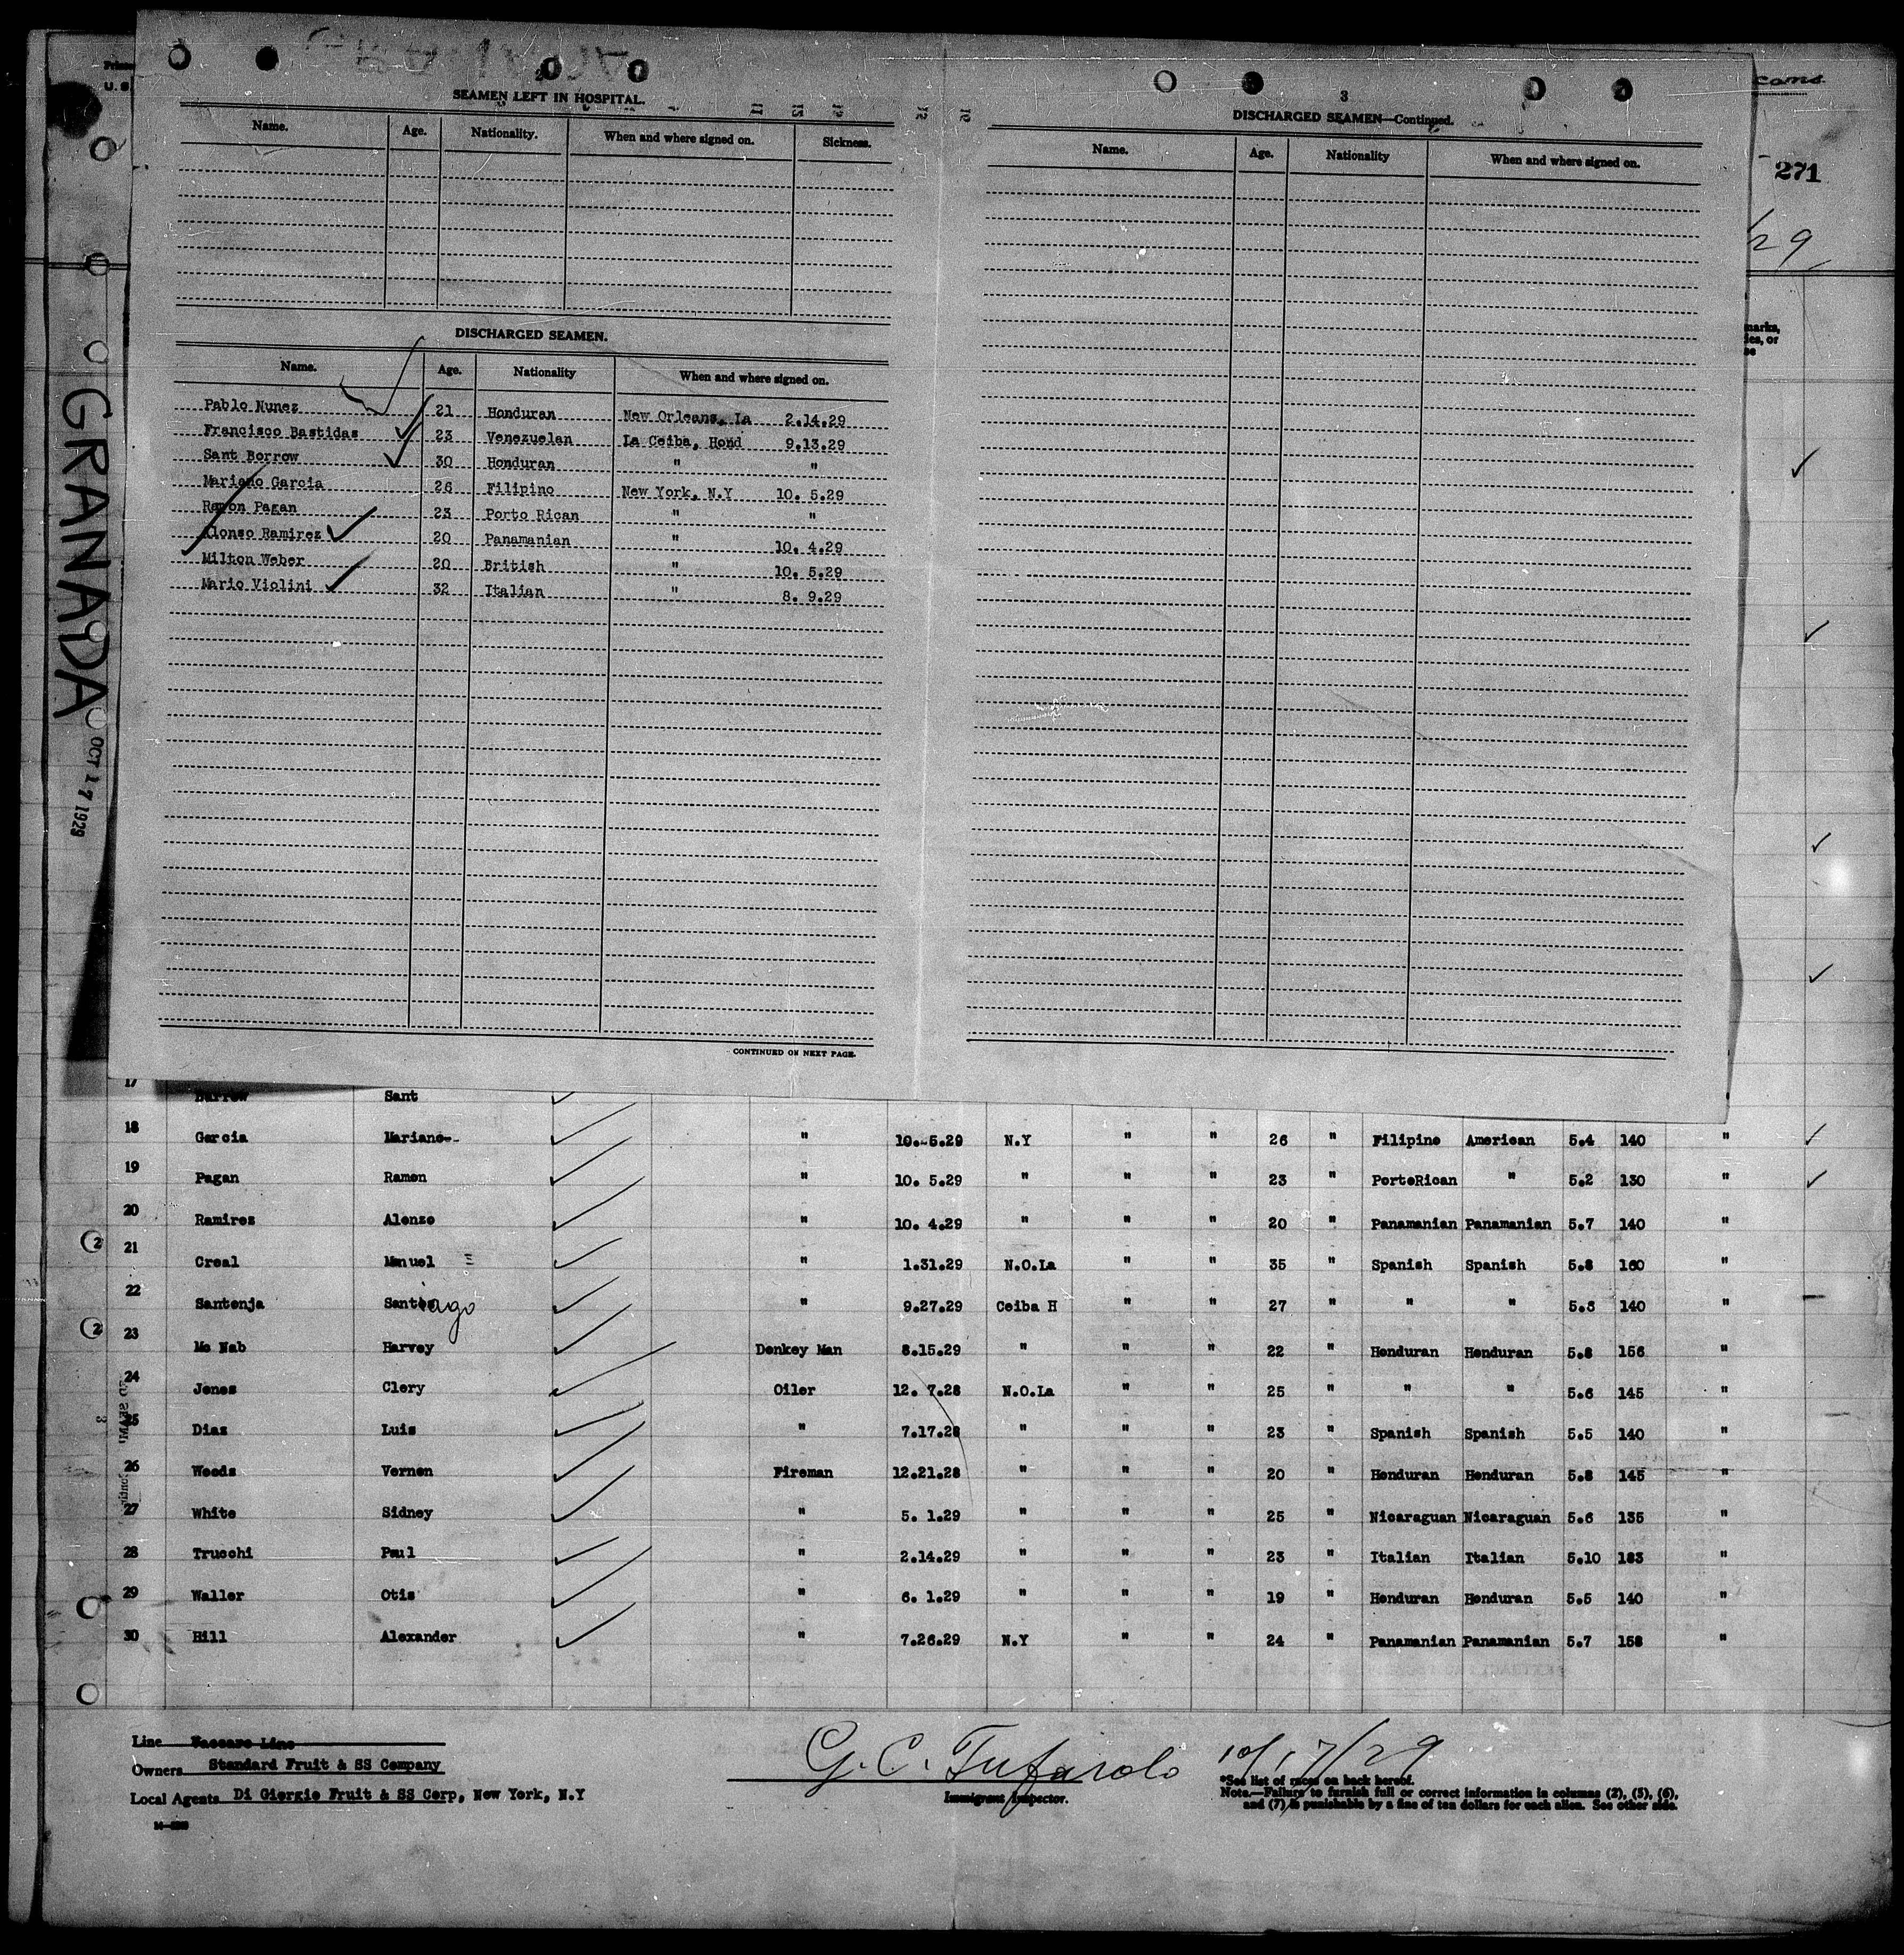 2
SEAMEN LEFT IN HOSPITAL.
Name. Age. Nationality. When and where signed on. Sickness.
DISCHARGED SEAMEN.
Name. Age. Nationality When and where signed on.
Pablo Nunez 21 Honduran New Orleans, La 2.14.29
Francisco Bastidas 23 Venezuelan La Ceiba, Hond 9.13.29
Sant Borrow 30 Honduran " "
Mariano Garcia 26 Filipino New York, N.Y 10. 5.29
Ramon Pagan 23 Porto Rican " "
Alonso Ramirez 20 Panamanian " 10. 4.29
Milton Weber 20 British " 10. 5.29
Mario Violini 32 Italian " 8. 9.29
CONTINUED ON NEXT PAGE.
3
DISCHARGED SEAMEN—Continued.
Name. Age. Nationality When and where signed on.
U. S.
271
29
marks,
GRANADA
OCT 17 1929
17 Barrow Sant
18 Garcia Mariano " 10. 5.29 N.Y " " 26 " Filipino American 5.4 140 "
19 Pagan Ramon " 10. 5.29 " " " 23 " PortoRican " 5.2 130 "
20 Ramirez Alonzo " 10. 4.29 " " " 20 " Panamanian Panamanian 5.7 140 "
21 Creal Manuel " 1.31.29 N.O.La " " 35 " Spanish Spanish 5.8 160 "
22 Santonja Santiago " 9.27.29 Ceiba H " " 27 " " " 5.5 140 "
23 Mc Nab Harvey Donkey Man 8.15.29 " " " 22 " Honduran Honduran 5.8 156 "
24 Jones Clery Oiler 12. 7.28 N.O.La " " 25 " " " 5.6 145 "
25 Diaz Luis " 7.17.28 " " " 23 " Spanish Spanish 5.5 140 "
26 Woods Vernon Fireman 12.21.28 " " " 20 " Honduran Honduran 5.8 145 "
27 White Sidney " 5. 1.29 " " " 25 " Nicaraguan Nicaraguan 5.6 135 "
28 Trucchi Paul " 2.14.29 " " " 23 " Italian Italian 5.10 183 "
29 Waller Otis " 6. 1.29 " " " 19 " Honduran Honduran 5.5 140 "
30 Hill Alexander " 7.26.29 N.Y " " 24 " Panamanian Panamanian 5.7 158 "
Line Vaccaro Line
Owners Standard Fruit & SS Company
Local Agents Di Giorgio Fruit & SS Corp, New York, N.Y
G. C. Tufarolo 10/17/29
Immigrant Inspector.
*See list of races on back hereof.
Note.—Failure to furnish full or correct information in columns (2), (5), (6),
and (7) is punishable by a fine of ten dollars for each alien. See other side.